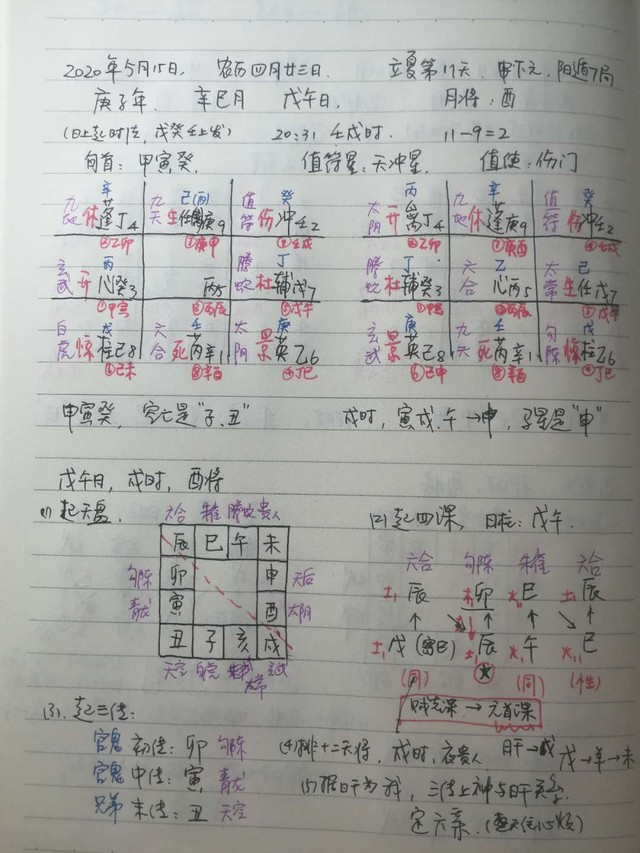 2020年5月15日, 农历四月廿三日. 立夏第11天. 甲下元, 阳遁7局
庚子年. 辛巳月 戊午日. 月将: 酉
(日上起时法, 戊癸壬上发) 20:31 壬戌时. 11-9=2
旬首: 甲寅癸. 值符星: 天冲星. 值使: 伤门
九地 辛 休蓬丁4 ⑥乙卯 九天 己(丙) 生任庚9 ①庚申 值符 癸 伤冲壬2 ⑨壬戌
玄武 丙 开心癸3 ①甲寅 丙5 ③丙辰 螣蛇 丁 杜辅戊7 ⑤戊午
白虎 戊 惊柱己8 ⑥己未 六合 壬 死芮辛1 ⑧辛酉 太阴 庚 景英乙6 ④丁巳
太阴 丙 开禽丁4 ②乙卯 九地 辛 休蓬庚9 值符 癸 伤冲壬2
螣蛇 丁 杜辅癸3 六合 乙 心丙5 太常 己 生任戊7
玄武 庚 景英己8 九天 壬 死芮辛1 ⑧辛酉 勾陈 戊 惊柱乙6 丁巳
甲寅癸, 空亡是"子.丑" 戌时, 寅戌.午→申, 马星是"申"
戊午日, 戌时, 酉将
(1) 起天盘. 六合 朱雀 螣蛇 贵人
辰 巳 午 未
勾陈 卯 申 天后
青龙 寅 酉 太阴
丑 子 亥 戌
天空 白虎 太常 玄武
(2) 起四课, 日柱: 戊午.
六合 勾陈 朱雀 六合
土 辰 木 卯 火 巳 土 辰
土 戊(寄巳) 土 辰 火 午 火 巳
(同) (同) (性)
贼克课 → 元首课
(3). 起三传:
官鬼 初传: 卯 勾陈
官鬼 中传: 寅, 青龙
兄弟 末传: 丑 天空
(4) 排十二天将, 戌时, 夜贵人 日干→戊 戊→羊→未
(5) 据日干为我, 三传上神与日干关系.
定六亲.